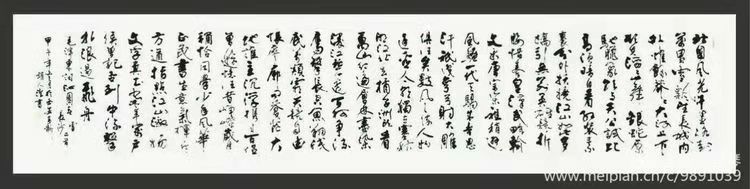 北国风光千里冰封
万里雪飘望长城内
外惟馀莽莽大河上下
顿失滔滔山舞银蛇原
驰蜡象欲与天公试比
高须晴日看红装素
裹分外妖娆江山如此多
娇引无数英雄竞折
腰惜秦皇汉武略输
文采唐宗宋祖稍逊
风骚一代天骄成吉思
汗只识弯弓射大雕
俱往矣数风流人物
还看今朝独立寒秋
湘江北去橘子洲头看
万山红遍层林尽染
漫江碧透百舸争流
鹰击长空鱼翔浅
底万类霜天竞自由
怅寥廓问苍茫大
地谁主沉浮携来百侣
曾游忆往昔峥嵘岁月
稠恰同学少年风华
正茂书生意气挥斥
方遒指点江山激扬
文字粪土当年万户
侯曾记否到中流击
水浪遏飞舟
毛泽东词沁园春雪长沙二首
甲午年
www.meipian.cn/c/9891039